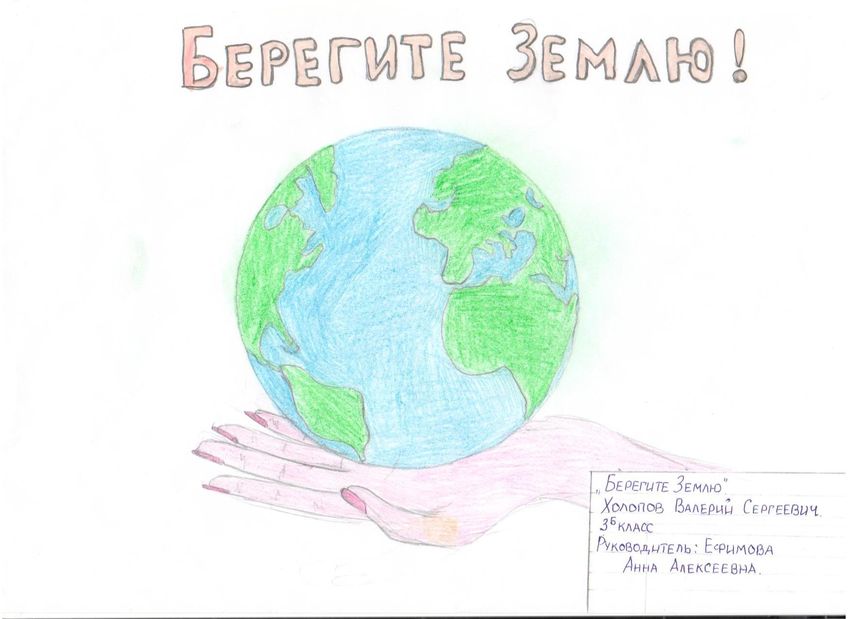 БЕРЕГИТЕ ЗЕМЛЮ!
„БЕРЕГИТЕ ЗЕМЛЮ"
ХОЛОПОВ ВАЛЕРИЙ СЕРГЕЕВИЧ.
3Б КЛАСС
РУКОВОДИТЕЛЬ: ЕФРИМОВА
АННА АЛЕКСЕЕВНА.